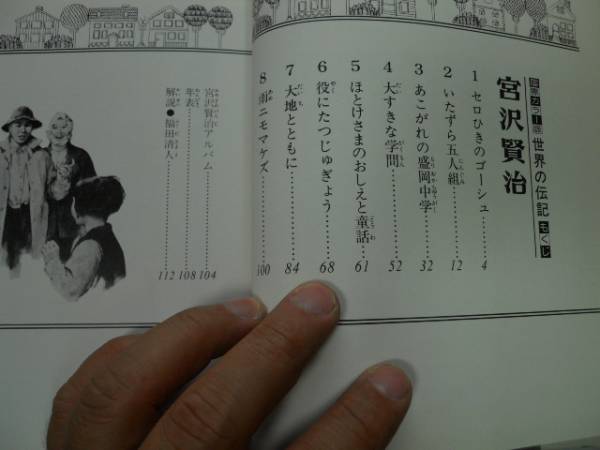 世界の伝記 もくじ
宮沢賢治
1 セロひきのゴーシュ……4
2 いたずら五人組……12
3 あこがれの盛岡中学……32
4 大すきな学問……52
5 ほとけさまのおしえと童話……61
6 役にたつじゅぎょう……68
7 大地とともに……84
8 雨ニモマケズ……100
宮沢賢治アルバム……104
年表……108
解説●脇田清人……112